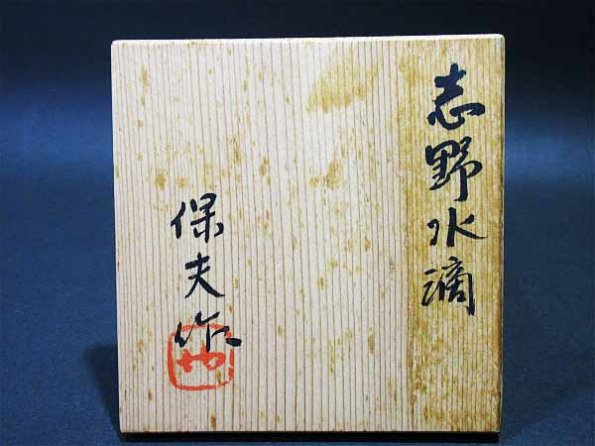 志野水滴
保夫作